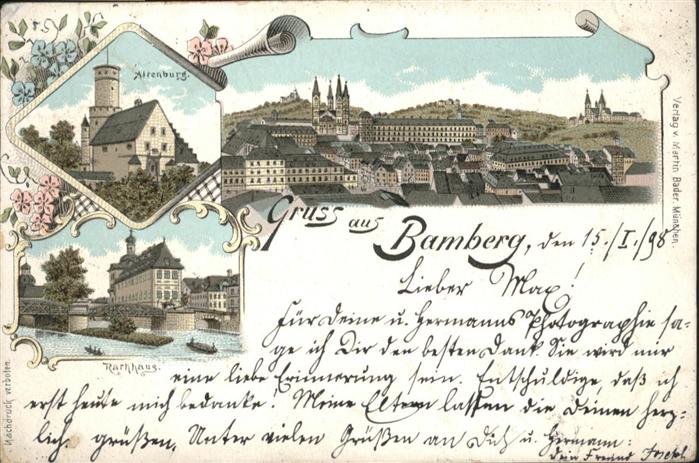 Altenburg.
Verlag v. Martin Bader, München.
Gruss aus Bamberg, den 15./I./98
Lieber Max!
Für Deine u. Hermanns Photographie sa-
ge ich Dir den besten Dank. Sie wird mir
eine liebe Erinnerung sein. Entschuldige, daß ich
erst heute mich bedanke! Meine Eltern lassen die Deinen herz-
lich grüßen. Unter vielen Grüßen an Dich u. Hermann:
dein Freund Joseph
Rathhaus.
Nachdruck verboten.